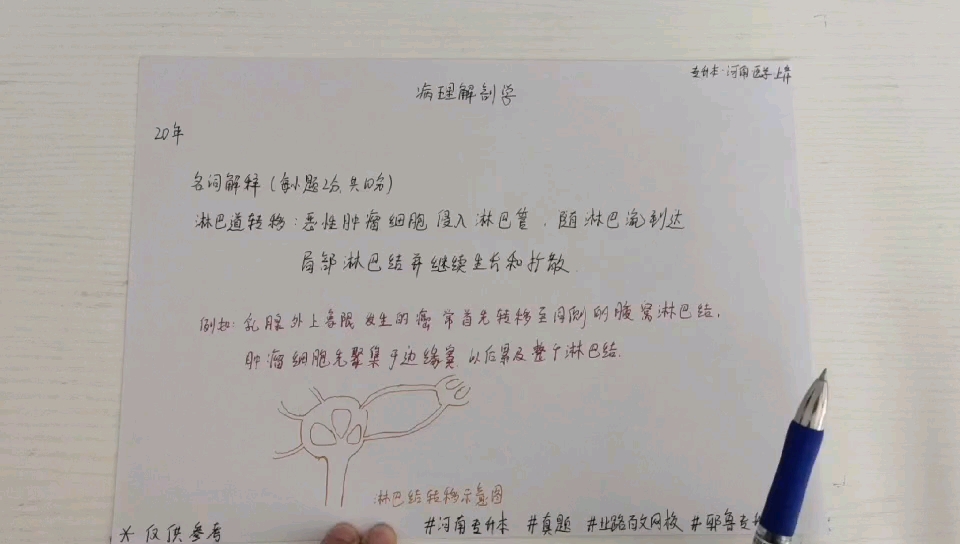 专升本·河南医学上岸
病理解剖学
20年
名词解释(每小题2分,共10分)
淋巴道转移:恶性肿瘤细胞侵入淋巴管,随淋巴流到达
局部淋巴结并继续生长和扩散.
例如:乳腺外上象限发生的癌常首先转移至同侧的腋窝淋巴结,
肿瘤细胞先聚集于边缘窦,以后累及整个淋巴结.
淋巴结转移示意图
#河南专升本 #真题 #
*仅供参考